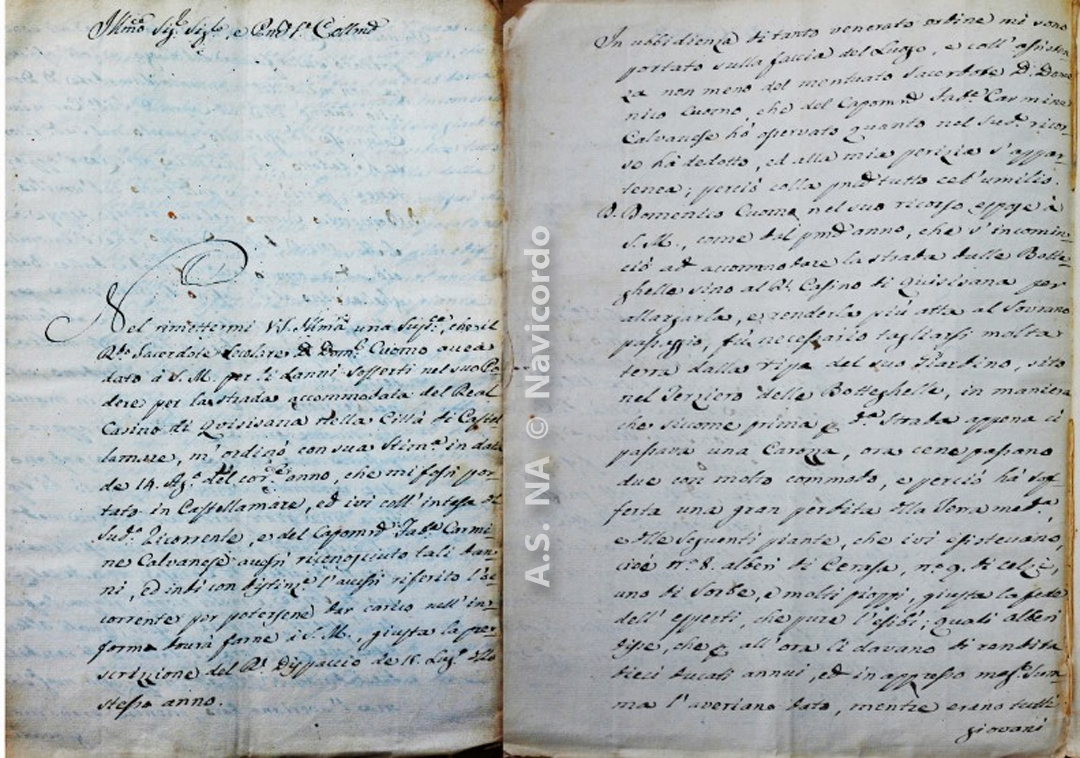 Illmõ Sig.r Sig.r, e Pñe
Nel rimettermi V.S. Illmã una Supp.ca, che il
R.do Sacerdote Secolare D. Dom.co Cuomo avea
dato à S. M. per li danni sofferti nel suo Po-
dere per la strada accommodata del Real
Casino di Quisisana della Città di Castel-
lamare, m'ordinò con sua in data
de 14. Ag.to del cor.te anno, che mi fossi por-
tato in Castellamare, ed ivi coll'intesa del
Sud.o Ricorrente, e del Capom.ro Fab.re Carmi-
ne Calvanese avessi riconosciuto tali dan-
ni, ed indi con distinz.e l'avessi riferito l'oc-
corrente per potersene dar carico nell'in-
forme dovrà farne à S. M., giusta la pre-
scrizione del R.l Dispaccio de Lug.o dello
stesso anno.
In ubbidienza di tanto venerato ordine mi sono
portato sulla faccia del Luogo, e coll'assisten-
za non meno del mentuato Sacerdote D. Dome-
nico Cuomo, che del Capom.ro Fab.re Carmine
Calvanese hò osservato quanto nel sud.o ricor-
so hà dedotto, ed alla mia perizia s'appar-
tenea; perciò colla pñte tutto ce l'umilio.
D. Domenico Cuomo nel suo ricorso espose à
S. M., come dal anno, che s'incomin-
ciò ad accommodare la strada dalle Botte-
ghelle sino al R.l Casino di Quisisana per
allargarla, e renderla più atta al Sovrano
passaggio, fù necessario tagliarsi molta
terra dalla ripa del suo Giardino, sito
nel Terziero delle Botteghelle, in maniera
che siccome prima p d.ta Strada appena ci
passava una Carozza, ora cene passano
due con molto commodo, e perciò hà sof-
ferta una gran perdita della Terra med.a,
e delle seguenti piante, che ivi esistevano,
cioè n.o 8. alberi di Cerasa, n.o 9. di celzi,
uno di Sorbe, e molti pioppi, giusta la fede
dell'esperti, che pure l'esibì; quali alberi
disse, che p all'ora li davano di rendita
dieci ducati annui, ed in appresso mag.r Som-
ma l'averiano dato, mentre erano tutti
giovani
A.S. NA © Navicordo